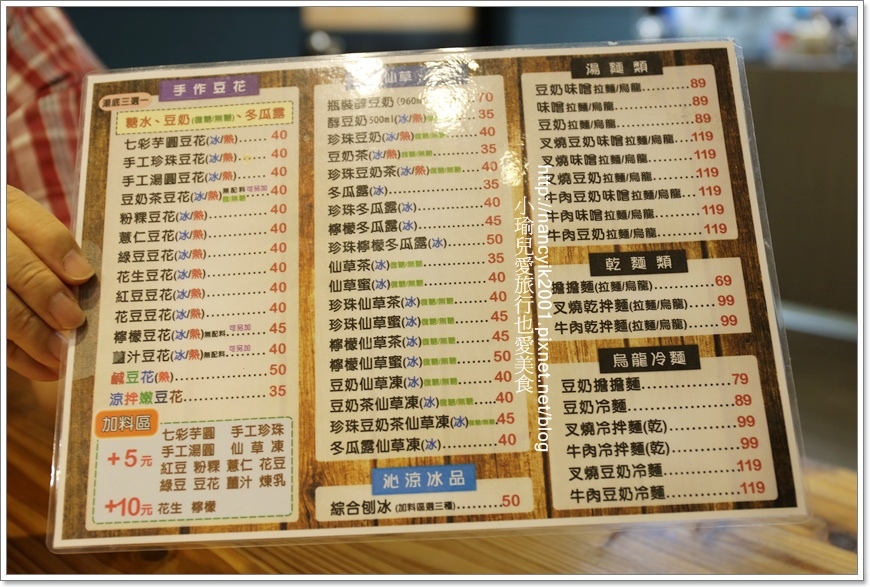 手作豆花
湯底三選一
糖水、豆奶(微糖/無糖)、冬瓜露
七彩芋圓豆花(冰/熱)......40
手工珍珠豆花(冰/熱)......40
手工湯圓豆花(冰/熱)......40
豆奶茶豆花(冰/熱)無配料 可另加 微糖/無糖..40
粉粿豆花(冰/熱)............40
薏仁豆花(冰/熱)............40
綠豆豆花(冰/熱)............40
花生豆花(冰/熱)............40
紅豆豆花(冰/熱)............40
花豆豆花(冰/熱)............40
檸檬豆花(冰/熱)無配料.可另加..45
薑汁豆花(冰/熱)無配料.可另加..40
鹹豆花(熱)....................50
涼拌嫩豆花....................35
加料區
+5元
七彩芋圓 手工珍珠
手工湯圓 仙草凍
紅豆 粉粿 薏仁 花豆
綠豆 豆花 薑汁 煉乳
+10元 花生 檸檬
仙草
瓶裝醇豆奶(960㎖)70
醇豆奶500ml(冰/熱)微糖/無糖.35
珍珠豆奶(冰/熱)微糖/無糖......40
豆奶茶(冰/熱)微糖/無糖.........35
珍珠豆奶茶(冰/熱)微糖/無糖...40
冬瓜露(冰)........................35
珍珠冬瓜露(冰)..................40
檸檬冬瓜露(冰)..................45
珍珠檸檬冬瓜露(冰)............50
仙草茶(冰)微糖/無糖............35
仙草蜜(冰)微糖/無糖............40
珍珠仙草茶(冰)微糖/無糖......40
珍珠仙草蜜(冰)微糖/無糖......45
檸檬仙草蜜(冰)微糖/無糖......50
豆奶仙草凍(冰)微糖/無糖......40
豆奶茶仙草凍(冰)微糖/無糖...40
珍珠豆奶茶仙草凍(冰)微糖/無糖45
冬瓜露仙草凍(冰)...............40
沁涼冰品
綜合刨冰(加料區選三種)........50
湯麵類
豆奶味噌拉麵/烏龍..........89
味噌拉麵/烏龍................89
豆奶拉麵/烏龍................89
叉燒豆奶味噌拉麵/烏龍...119
叉燒味噌拉麵/烏龍.........119
叉燒豆奶拉麵/烏龍.........119
牛肉豆奶味噌拉麵/烏龍...119
牛肉味噌拉麵/烏龍.........119
牛肉豆奶拉麵/烏龍.........119
乾麵類
擔擔麵(拉麵/烏龍)..........69
叉燒乾拌麵(拉麵/烏龍)....99
牛肉乾拌麵(拉麵/烏龍)....99
烏龍冷麵
豆奶擔擔麵..................79
豆奶冷麵.....................89
叉燒冷拌麵(乾)............99
牛肉冷拌麵(乾)............99
叉燒豆奶冷麵..............119
牛肉豆奶冷麵..............119
http://nancylk2001.pixnet.net/blog
小瑜兒愛旅行也愛美食